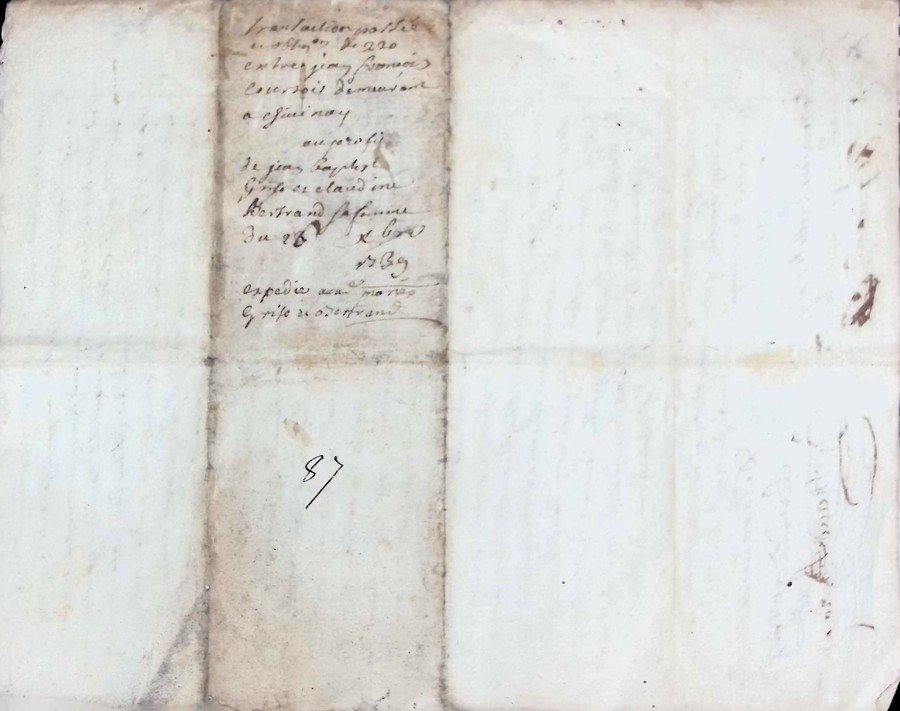 transaction passée
de 220
entre jean francois
courtois demeurant
a
au profit
de jean baptist
Griso et claudine
Bertrand sa femme
du 28 xbre
1739
expedie aux mariés
Griso et Bertrand
87